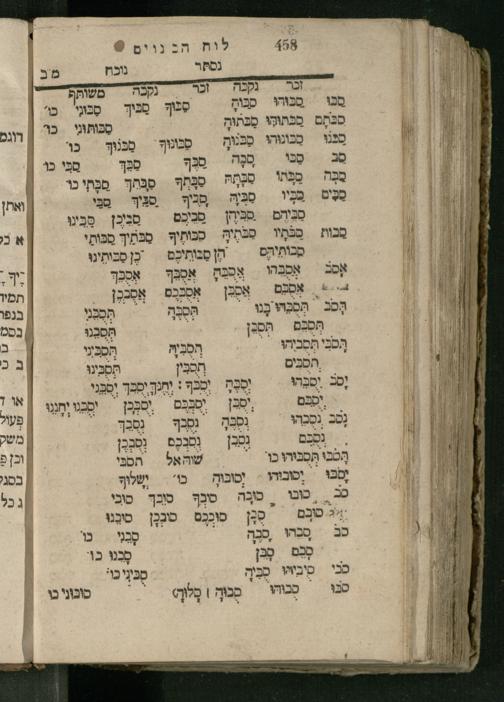 458 לוח הבנוים
נסתר נוכח מ׳ב
זכר נקבה זכר נקבה משותף
סַבּוּ סַבּוּהוּ סַבּוּהָ סַבּוּךָ סַבּוּךְ סַבּוּנִי כו׳
סַבֹּתֶם סַבֹּתוּהוּ סַבֹּתוּהָ סַבֹּתוּנִי כו׳
סַבֹּנוּ סַבֹּנוּהוּ סַבֹּנוּהָ סַבֹּנוּךָ סַבֹּנוּךְ כו׳
סַב סַבּוֹ סַבָּהּ סַבְּךָ סַבֵּךְ סַבִּי כו
סַבָּה סַבָּתוֹ סַבָּתָהּ סַבָּתְךָ סַבָּתֵךְ סַבָּתִי כו
סַבִּים סַבָּיו סַבֶּיהָ סַבֶּיךָ סַבַּיִךְ סַבַּי
סַבֵּיהֶם סַבֵּיהֶן סַבֵּיכֶם סַבֵּיכֶן סַבֵּינוּ
סַבּוֹת סַבֹּתָיו סַבֹּתֶיהָ סַבּוֹתֶיךָ סַבֹּתַיִךְ סַבּוֹתַי
סַבּוֹתֵיהֶם הֶן סַבּוֹתֵיכֶם כֶן סַבּוֹתֵינוּ
אָסֹב אֲסֻבֵּהוּ אֲסֻבֶּהָ אֲסֻבְּךָ אֲסֻבֵּךְ
אֲסֻבֵּם אֲסֻבֵּן אֲסֻבְּכֶם אֲסֻבְּכֶן
תָּסֹב תְּסֻבֵּהוּ בֶּנּוּ תְּסֻבֶּהָ תְּסֻבֵּנִי
תְּסֻבֵּם תְּסֻבֵּן תְּסֻבֵּנוּ
תָּסֹבִּי תְּסֻבִּיהוּ תְּסֻבִּיהָ תְּסֻבִּינִי
תְּסֻבִּים תְּסֻבִּין תְּסֻבִּינוּ
יָסֹב יְסֻבֵּהוּ יְסֻבֶּהָ יְסֻבְּךָ : יָחְנְךָ יְסֻבֵּךְ יְסֻבֵּנִי
יְסֻבֵּם יְסֻבֵּן יְסֻבְּכֶם יְסֻבְּכֶן יְסֻבֵּנוּ יְחָנֵּנוּ
נָסֹב נְסֻבֵּהוּ נְסֻבֶּהָ נְסֻבְּךָ נְסֻבֵּךְ
נְסֻבֵּם נְסֻבֵּן נְסֻבְּכֶם נְסֻבְּכֶן
תָּסֹבּוּ תְּסֻבּוּהוּ כו׳ שוה אל תסבי
יָסֹבּוּ יְסוּבּוּהוּ יְסוּבּוּהָ כו׳ יְשָׁלּוּךָ
סֹב סוּבּוֹ סוּבָּהּ סוּבְּךָ סוּבֵּךְ סוּבִּי
סוּבָּם סֻבָּן סוּבְּכֶם סוּבְּכֶן סוּבֵּנוּ
סֹב סֻבֵּהוּ סֻבֶּהָ סֻבֵּנִי כו׳
סֻבֵּם סֻבֵּן סֻבֵּנוּ כו׳
סֹבִּי סֻבִּיהוּ סֻבִּיהָ סֻבִּינִי כו׳
סֹבּוּ סֻבּוּהוּ סֻבּוּהָ ( סָלּוּהָ) סוּבּוּנִי כו